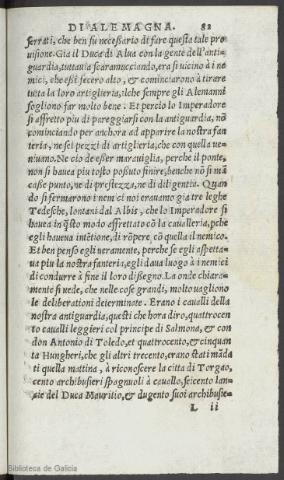 DI ALEMAGNA. 82
serrati, che ben fu necessario di fare questa tale pro
uisione. Gia il Duca di Alua con la gente dell'anti-
guardia, tuttauia scaramucciando, era si uicino à i ne
mici, che essi fecero alto, & cominciarono à tirare
tutta la loro artiglieria, ilche sempre gli Alemanni
sogliono far molto bene. Et percio lo Imperadore
si affretto piu di pareggiarsi con la antiguardia, nō
cominciando per anchora ad apparire la nostra fan
teria, ne sei pezzi di artiglieria, che con quella ue-
niuano. Ne cio de esser marauiglia, perche il ponte,
non si hauea piu tosto possuto finire, benche nō si mā
casse punto, ne di prestezza, ne di diligentia. Quan
do si fermarono i nemici noi erauamo gia tre leghe
Tedesche, lontani dal Albis, che lo Imperadore si
hauea in q̄sto modo affrettato cō la caualleria, pche
egli haueua intētione, di rōpere, cō quella il nemico.
Et ben penso egli ueramente, perche se egli aspetta-
ua piu la nostra fanteria, egli daua luogo à i nemici
di condurre à fine il loro disegno. La onde chiara-
mente si uede, che nelle cose grandi, molto uagliono
le deliberationi determinate. Erano i caualli della
nostra antiguardia, questi che hora diro, quattrocen
to caualli leggieri col principe di Salmona, & con
don Antonio di Toledo, et quattrocento, & cinquan
ta Hungheri, che gli altri trecento, erano stati māda
ti quella mattina, à riconoscere la citta di Torgao,
cento archibusieri spagnuoli à cauallo, seicento lan-
cie del Duca Mauritio, & dugento suoi archibusie-
L ii
Biblioteca de Galicia